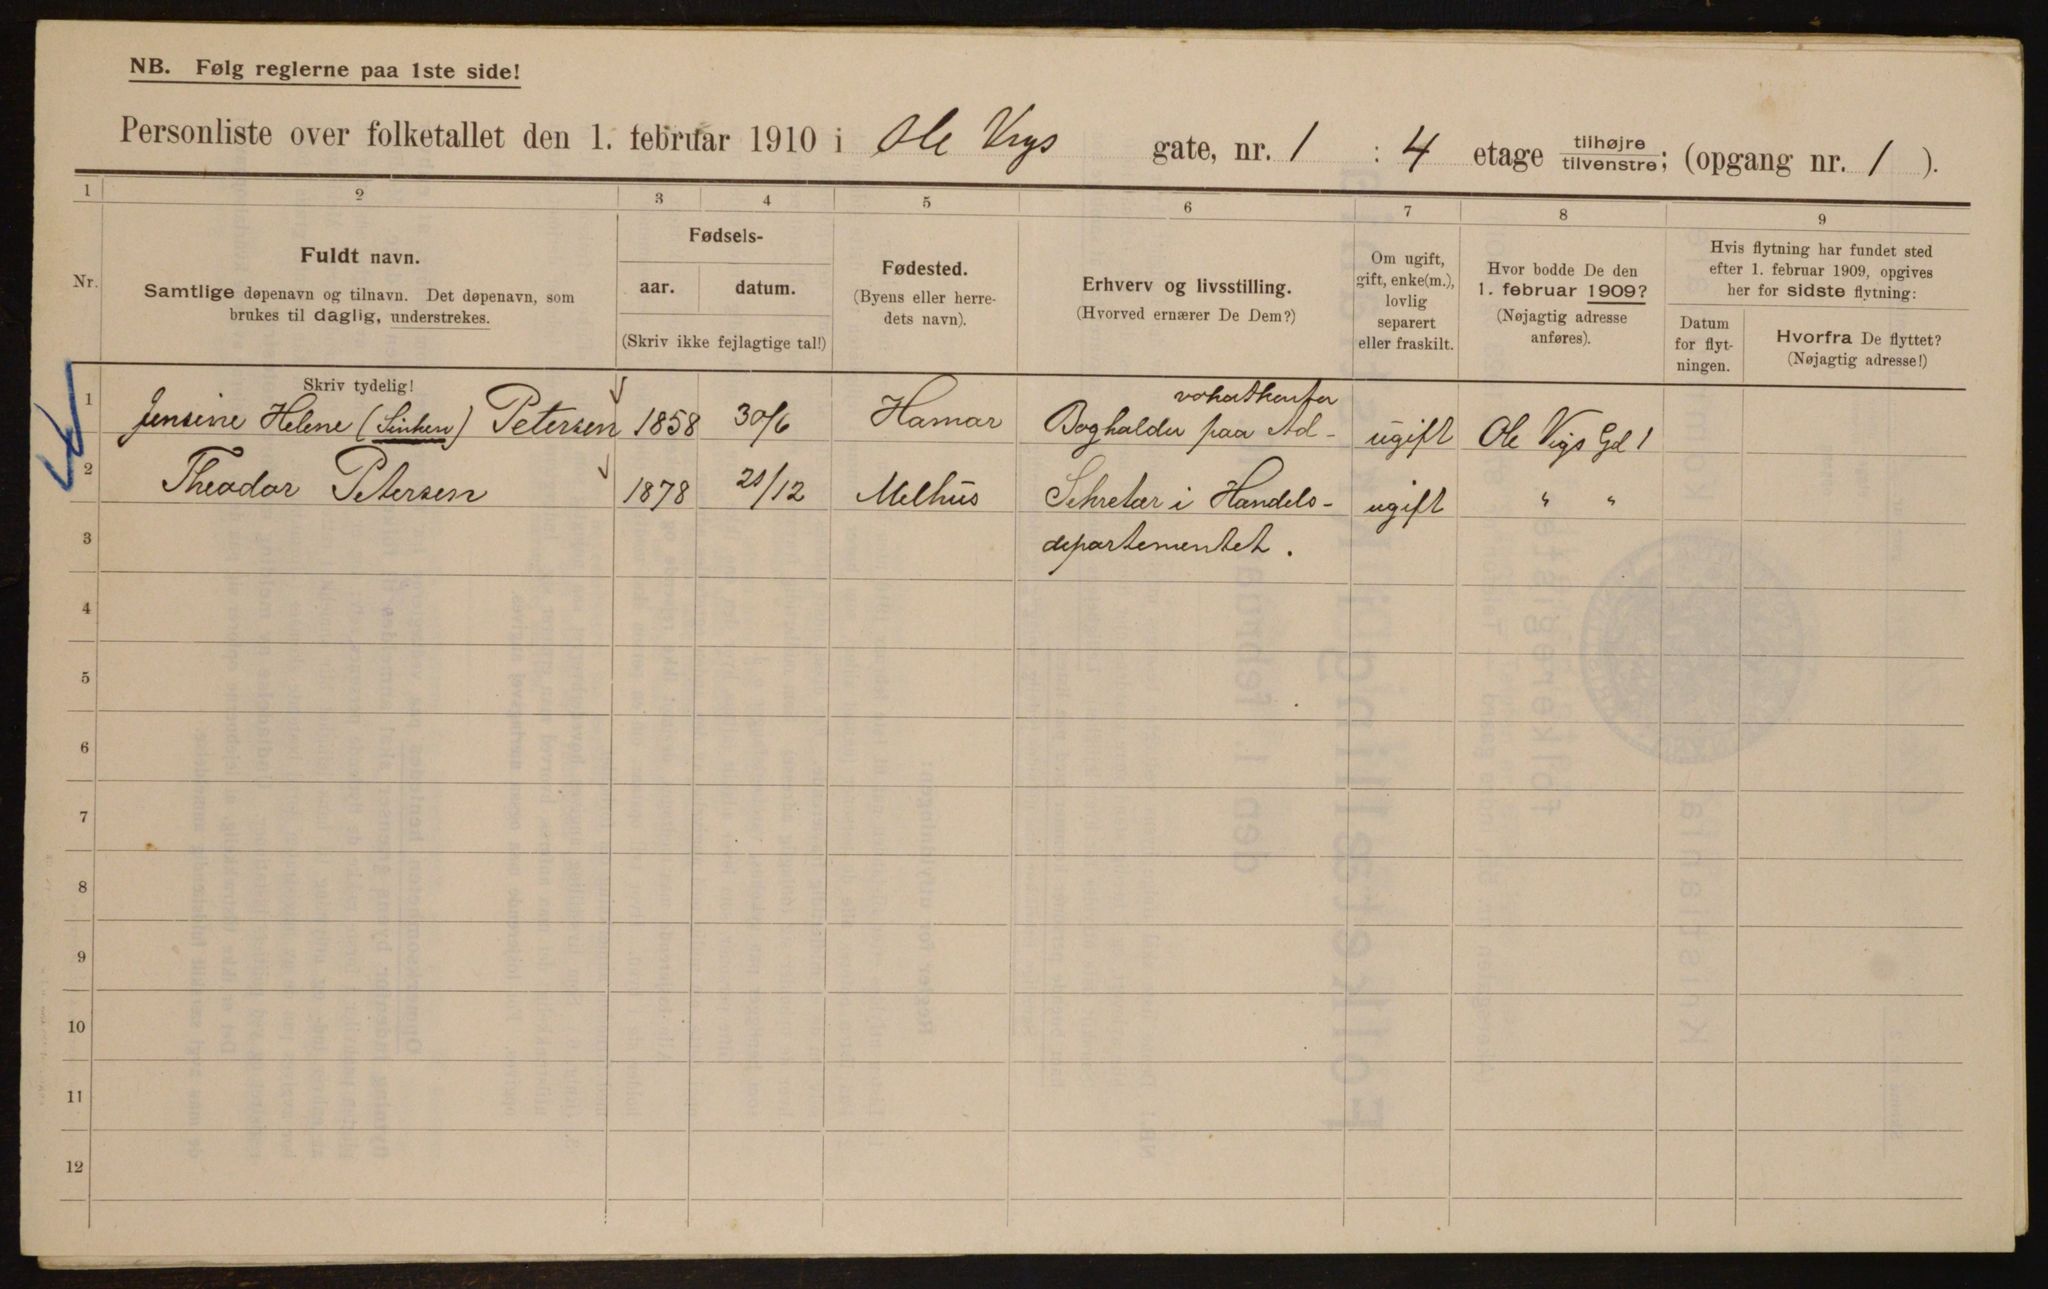 NB. Følg reglerne paa 1ste side!
Personliste over folketallet den 1. februar 1910 i Ole Vigs gate, nr. 1 : 4 etage tilhøjre/tilvenstre; (opgang nr. 1 ).
1 2 3 4 5 6 7 8 9
Nr.
Fuldt navn.
Samtlige døpenavn og tilnavn. Det døpenavn, som
brukes til daglig, understrekes.
Fødsels-
aar. datum.
(Skriv ikke fejlagtige tal!)
Fødested.
(Byens eller herre-
dets navn).
Erhverv og livsstilling.
(Hvorved ernærer De Dem?)
Om ugift,
gift, enke(m.),
lovlig
separert
eller fraskilt.
Hvor bodde De den
1. februar 1909?
(Nøjagtig adresse
anføres).
Hvis flytning har fundet sted
efter 1. februar 1909, opgives
her for sidste flytning:
Datum
for flyt-
ningen.
Hvorfra De flyttet?
(Nøjagtig adresse!)
Skriv tydelig!
1 Jensine Helene ( ) Petersen 1858 30/6 Hamar Bogholder paa Ad- ugift Ole Vigs Gd 1
2 Theodor Petersen 1878 21/12 Melhus Sekretær i Handels- ugift " "
3 departementet.
4
5
6
7
8
9
10
11
12